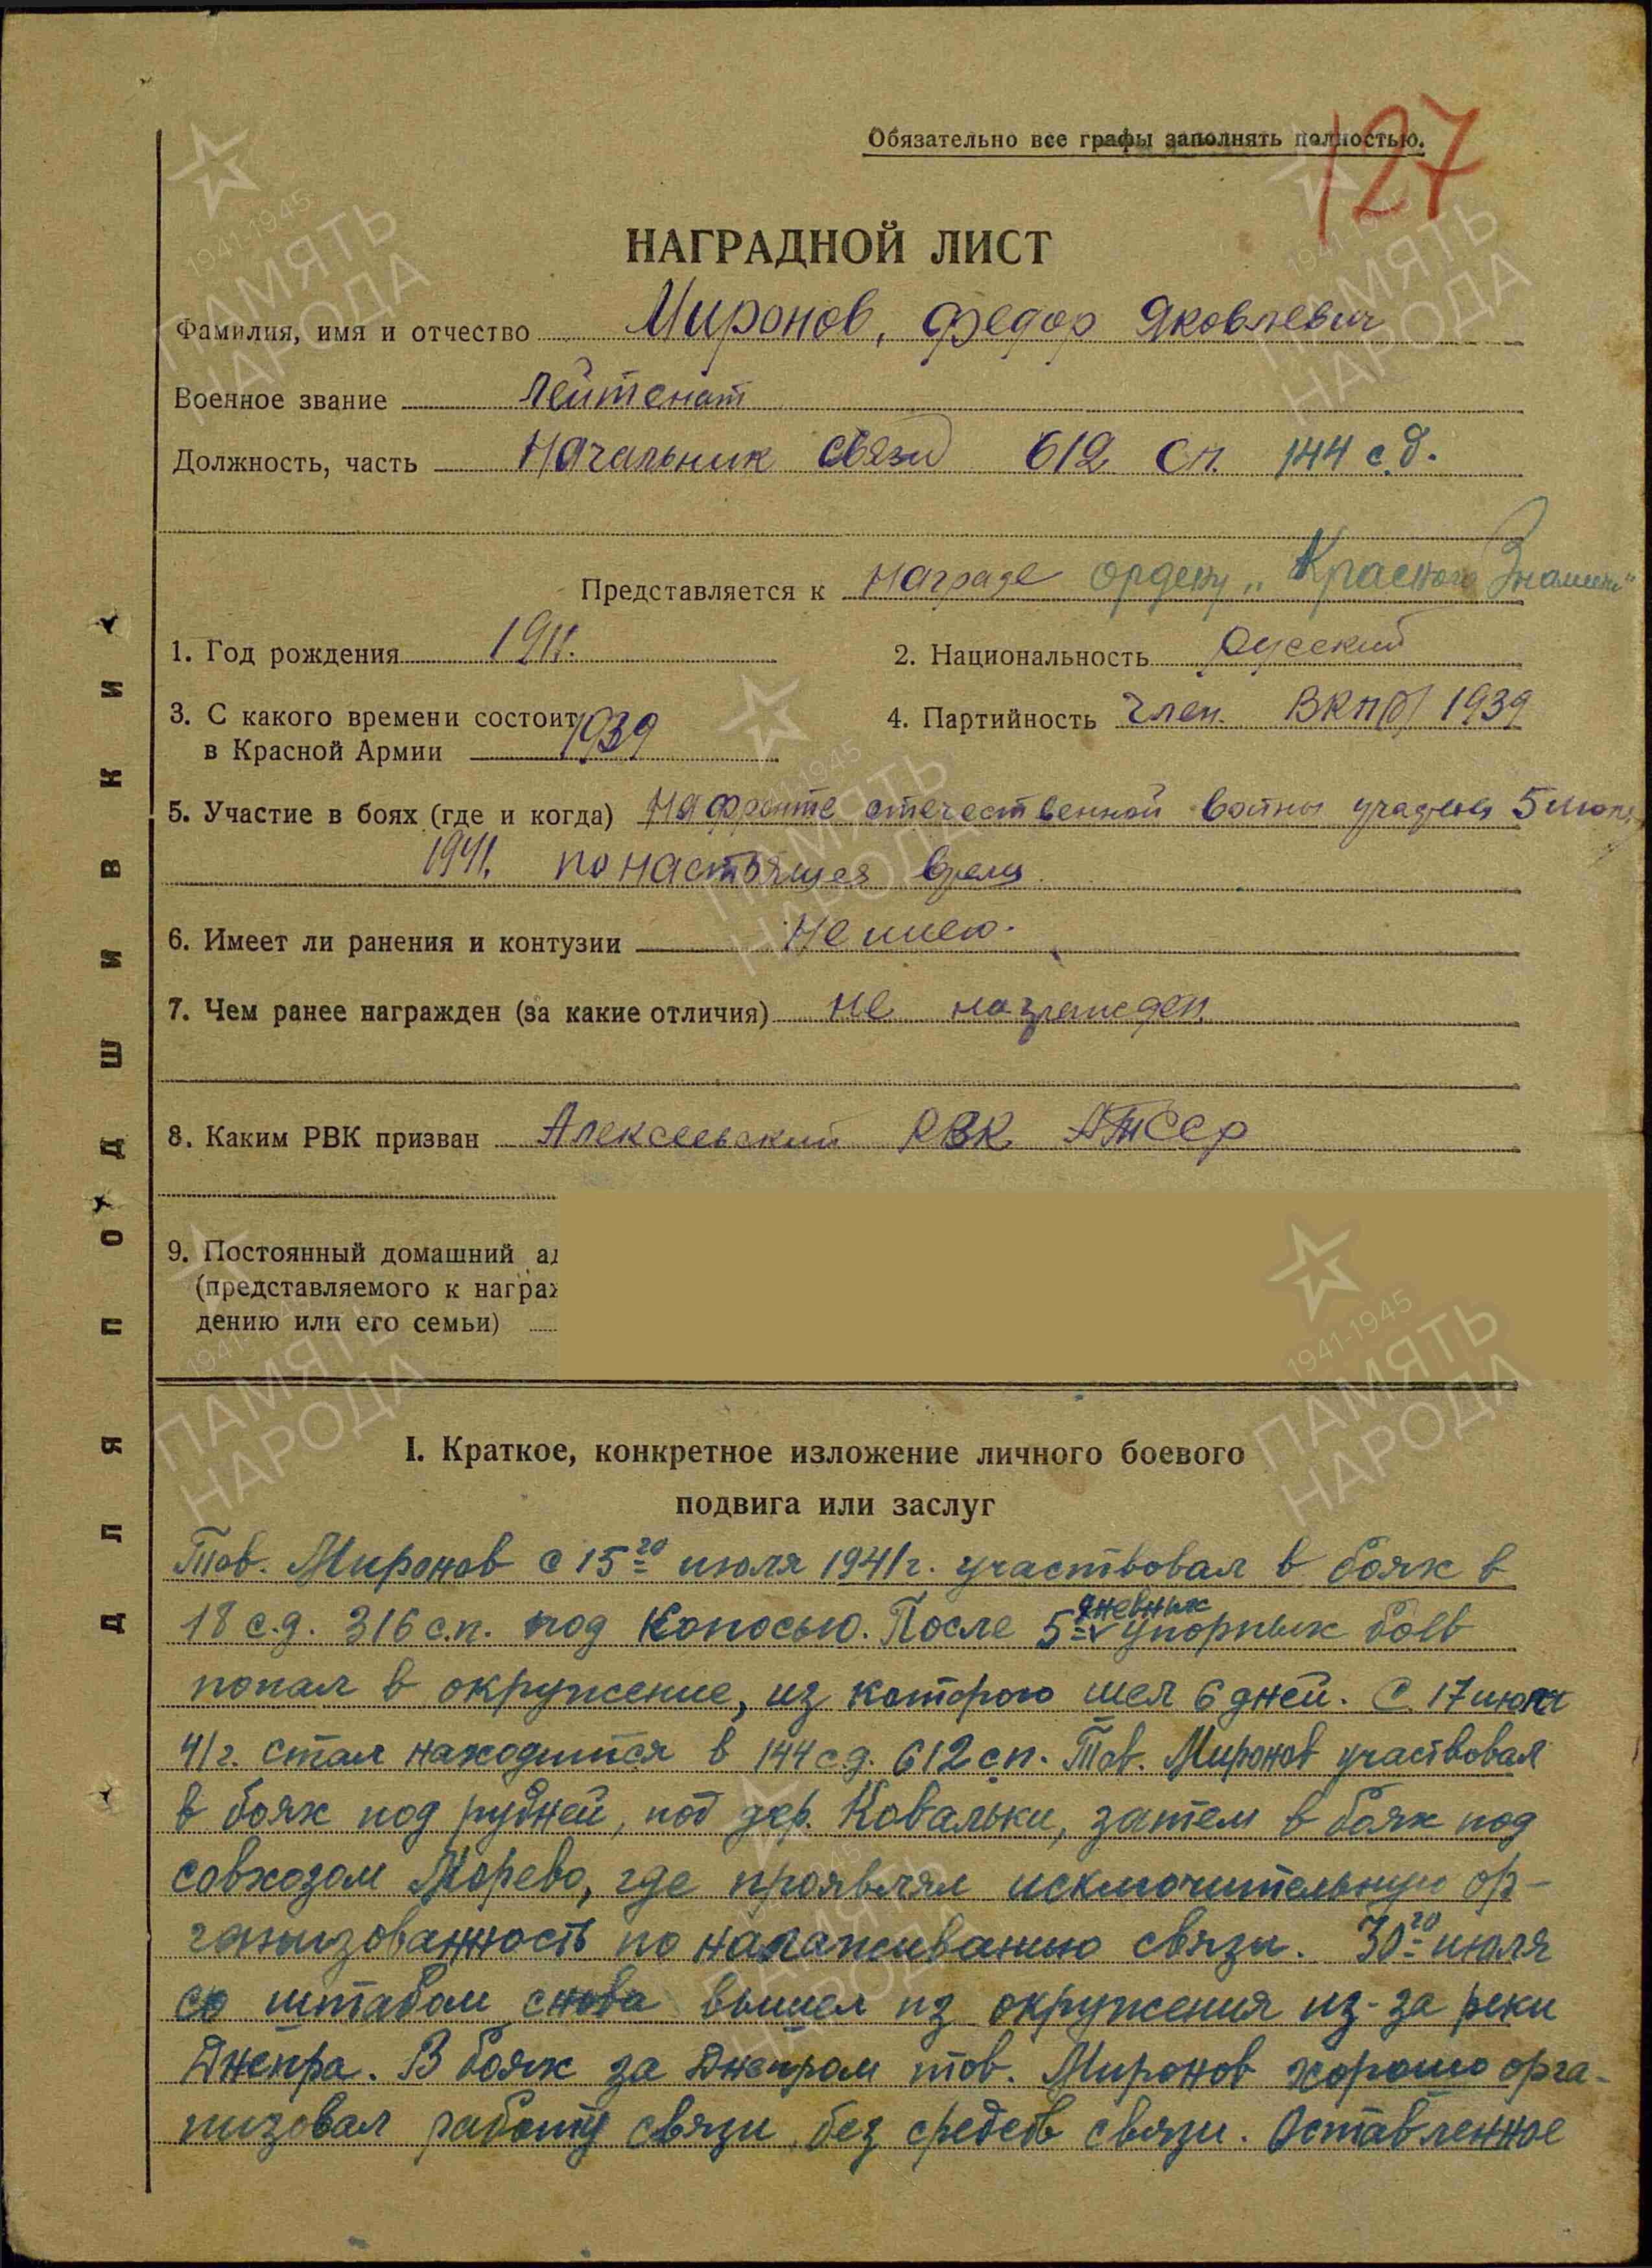 127
Обязательно все графы заполнять полностью.
НАГРАДНОЙ ЛИСТ
Фамилия, имя и отчество Миронов, Федор Яковлевич
Военное звание лейтенат
Должность, часть Начальник связи 612 сп. 144 с.д.
Представляется к награде ордену „Красного Знамени"
1. Год рождения 1911.
2. Национальность русский
3. С какого времени состоит
в Красной Армии 1939
4. Партийность член ВКП(б) 1939
5. Участие в боях (где и когда) На фронте отечественной войны 5 июля
1941. по настоящея время
6. Имеет ли ранения и контузии Не имею.
7. Чем ранее награжден (за какие отличия) не награжден
8. Каким РВК призван Алексеевский РВК АТССР
9. Постоянный домашний ад
(представляемого к награж
дению или его семьи)
I. Краткое, конкретное изложение личного боевого
подвига или заслуг
Тов. Миронов с 15го июля 1941г. участвовал в боях в
18 с.д. 316 с.п. под Копосью. После 5- дневных упорных боев
попал в окружение, из которого шел 6 дней. С 17 июля
41г. стал находится в 144 с.д. 612 сп. Тов. Миронов участвовал
в боях под рудней, под дер. Ковальки, затем в боях под
совхозом Морево, где проявлял исключительную ор-
ганизованность по налаживанию связи. 30го июля
со штабом снова вышел из окружения из-за реки
Днепра. В боях за Днепром тов. Миронов хорошо орга-
низовал работу связи без средств связи. Оставленное
ДЛЯ ПОДШИВКИ
1941-1945
ПАМЯТЬ
НАРОДА
1941-1945
ПАМЯТЬ
НАРОДА
1941-1945
ПАМЯТЬ
НАРОДА
1941-1945
ПАМЯТЬ
НАРОДА
1941-1945
ПАМЯТЬ
НАРОДА
1941-1945
ПАМЯТЬ
НАРОДА